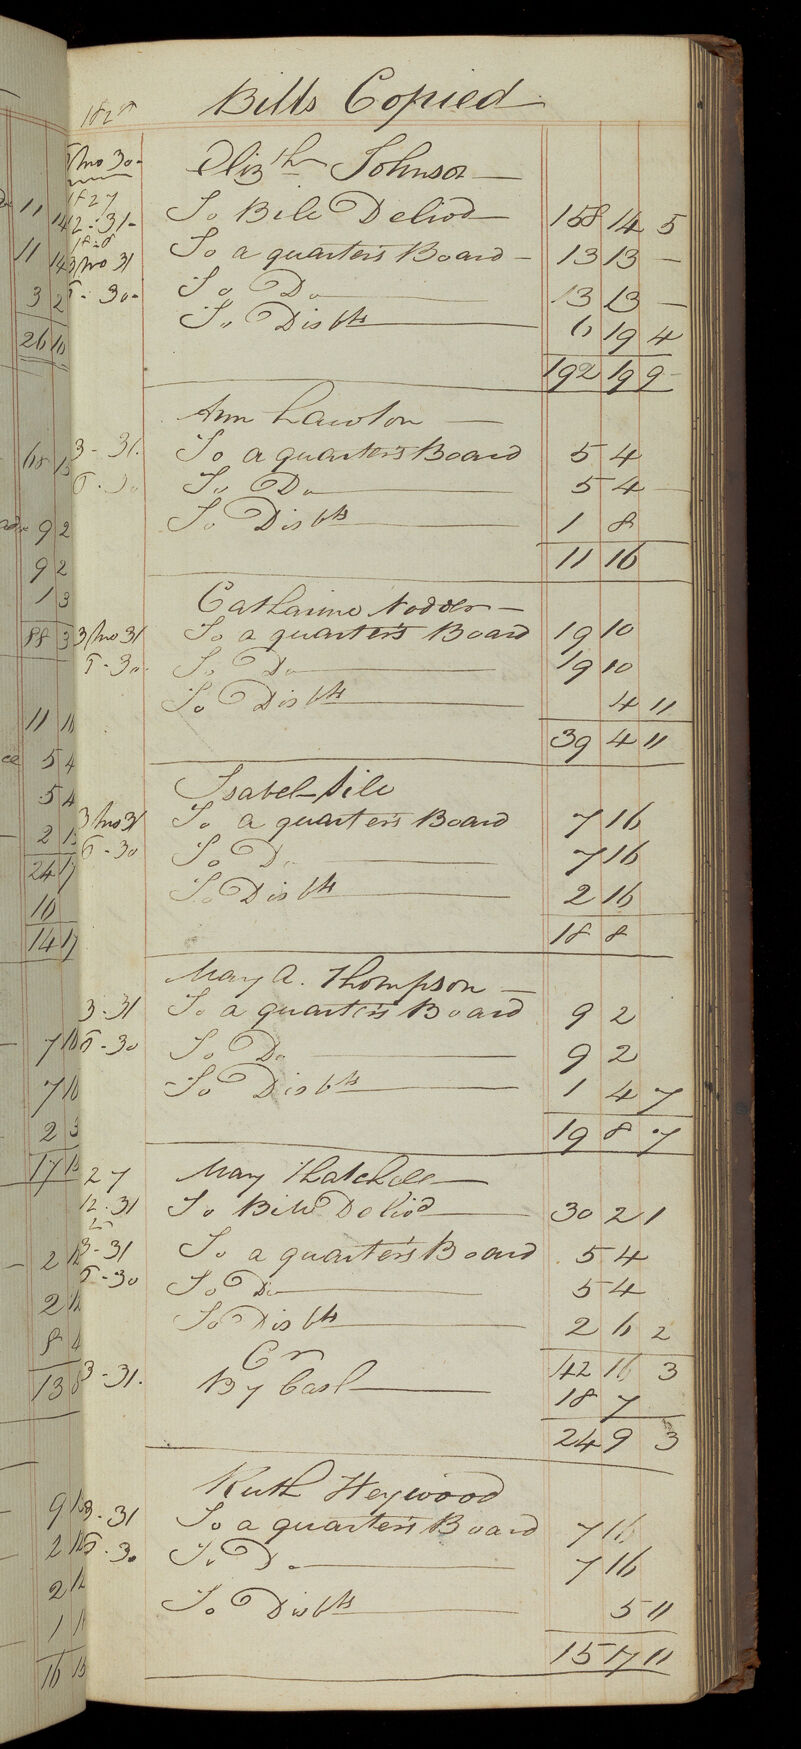 Bills Copied
1828
6/mo 30 - Elizth Johnson
1827
12 - 31 - To Bill Deliv'd 158 14 5
1828
3/mo 31 To a quarter's Board - 13 13 -
6 - 30 - To Do 13 13 -
To Disbts 6 19 4
192 19 9
Ann Lawton
3 - 31. To a quarter's Board 5 4
6 - 30 To Do 5 4 -
To Disbts 1 8
11 16
Catharine Nodder -
3/mo 31 To a quarter's Board 19 10
6 - 30. To Do 19 10
To Disbts 4 11
39 4 11
Isabel
3/mo 31 To a quarter's Board 7 16
6 - 30 To Do 7 16
To Disbts 2 16
18 8
Mary A. Thompson -
3 - 31 To a quarter's Board 9 2
6 - 30 To Do 9 2
To Disbts 1 4 7
19 8 7
27 Mary Thatcher
12 - 31 To Bill Deliv'd 30 2 1
28
3 - 31 To a quarter's Board 5 4
6 - 30 To Do 5 4
To Disbts 2 6 2
Cr 42 16 3
3 - 31. By Cash 18 7
24 9 3
Ruth Heywood
3 - 31 To a quarter's Board 7 16
6 - 30 To Do 7 16
To Disbts 5 11
15 17 11